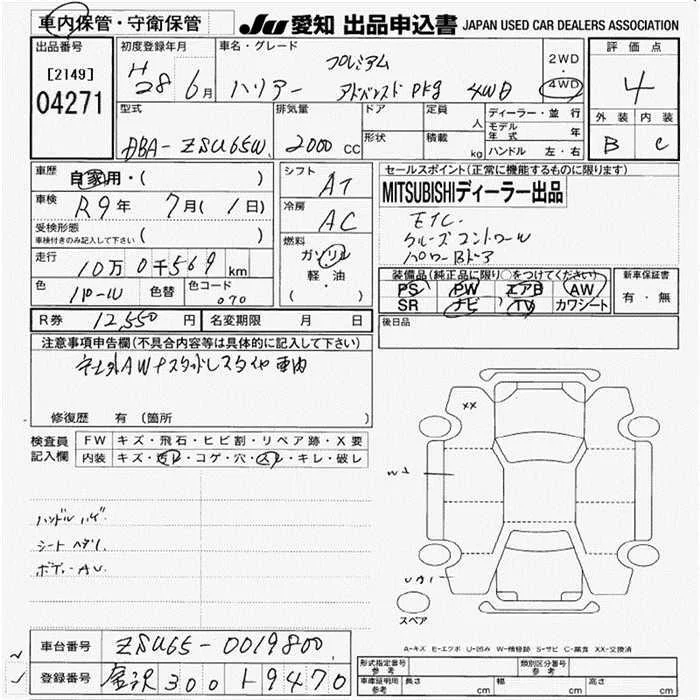 車内保管・守衛保管
JU 愛知 出品申込書 JAPAN USED CAR DEALERS ASSOCIATION
出品番号
[2149]
04271
初度登録年月
H28 6月
車名・グレード
プレミアム
ハリアー アドバンスド PKg 4WD
2WD
・
4WD
評価点
4
外装 内装
B C
型式
DBA-ZSU65W
排気量
2000 CC
ドア
形状
定員
人
積載
kg
ディーラー・並行
モデル年式 年
ハンドル 左・右
車歴
自家用・( )
車検
R9年 7月(1日)
受検形態
車検付きのみ記入して下さい ( )
走行
10万0千569 km
色
パール
色替
色コード
070
シフト
AT
冷房
AC
燃料
ガソリン
軽・油
(・)
セールスポイント(正常に機能するものに限ります)
MITSUBISHIディーラー出品
ETC
クルーズコントロール
パワーBドア
装備品(純正品に限り○をつけてください)
PS PW エアB AW
SR ナビ TV カワシート
新車保証書
有・無
R券 12,550円
名変期限 月 日
後日品
注意事項申告欄(不具合内容等は具体的に記入して下さい)
社外AW+スタッドレスタイヤ車内
修復歴 有(箇所 )
検査員記入欄
FW キズ・飛石・ヒビ割・リペア跡・X要
内装 キズ・汚レ・コゲ・穴・スレ・キレ・破レ
ハンドルハゲ
シートヘタリ
ボデーAU
XX
W1
UA1
スペア
A-キズ E-エクボ U-凹み W-補修跡 S-サビ C-腐食 XX-交換済
車台番号 ZSU65-0019800
登録番号 金沢 300 ト 9470
形式指定番号 参考
類別区分番号 参考
車庫証明用 参考 長さ cm 幅 cm 高さ cm